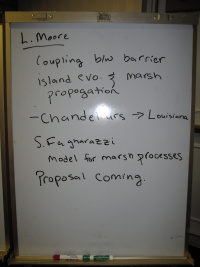 L. Moore
Coupling b/w barrier
island evo. & marsh
propogation
- Chandeleurs → Louisiana
S. Fagharazzi
Model for marsh processes
Proposal coming.